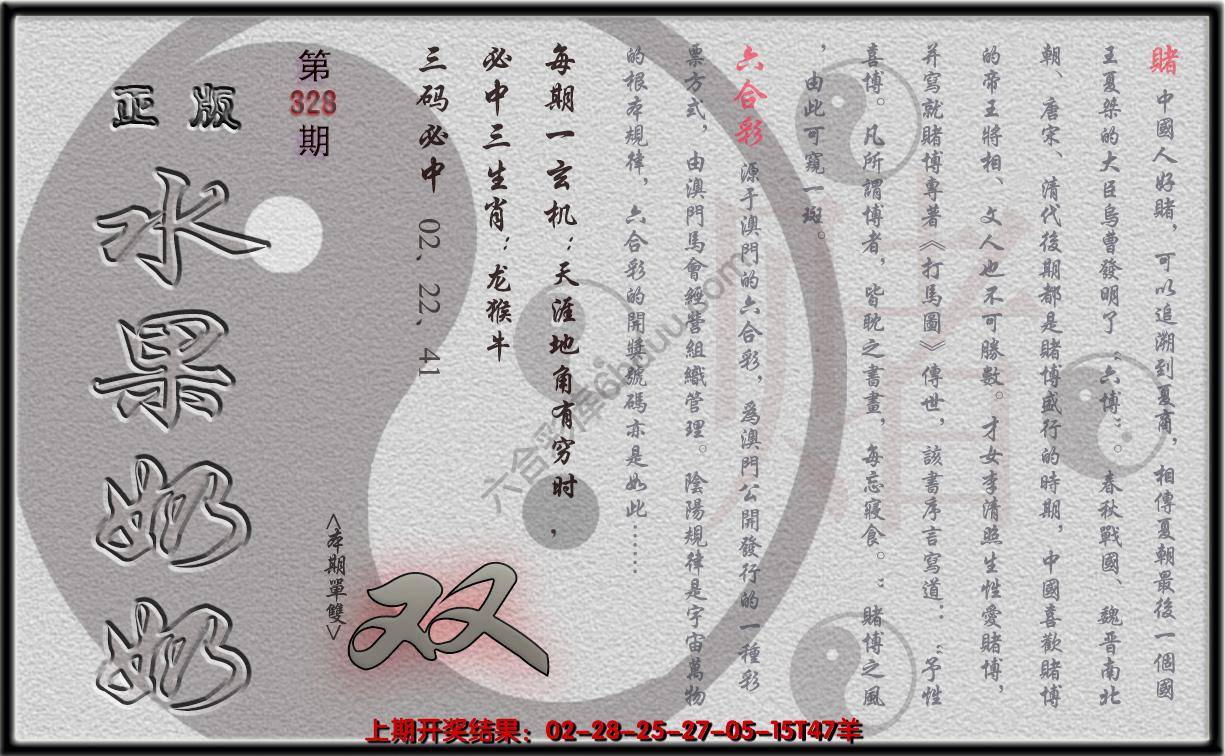 賭 中國人好賭，可以追溯到夏商，相傳夏朝最後一個國
王夏桀的大臣烏曹發明了“六博”。春秋戰國、魏晋南北
朝、唐宋、清代後期都是賭博盛行的時期，中國喜歡賭博
的帝王將相、文人也不可勝數。才女李清照生性愛賭博，
并寫就賭博專著《打馬圖》傳世，該書序言寫道：“予性
喜博。凡所謂博者，皆耽之晝晝，每忘寢食。”賭博之風
，由此可窺一斑。
六合彩 源于澳門的六合彩，爲澳門公開發行的一種彩
票方式，由澳門馬會經營組織管理。陰陽規律是宇宙萬物
的根本規律，六合彩的開獎號碼亦是如此……
每期一玄机：天涯地角有穷时，
必中三生肖：龙猴牛
三码必中 02、22、41
第328期
正版
水果奶奶
<本期單雙>
双
賭
六合彩库6hduu.com
上期开奖结果：02-28-25-27-05-15T47羊